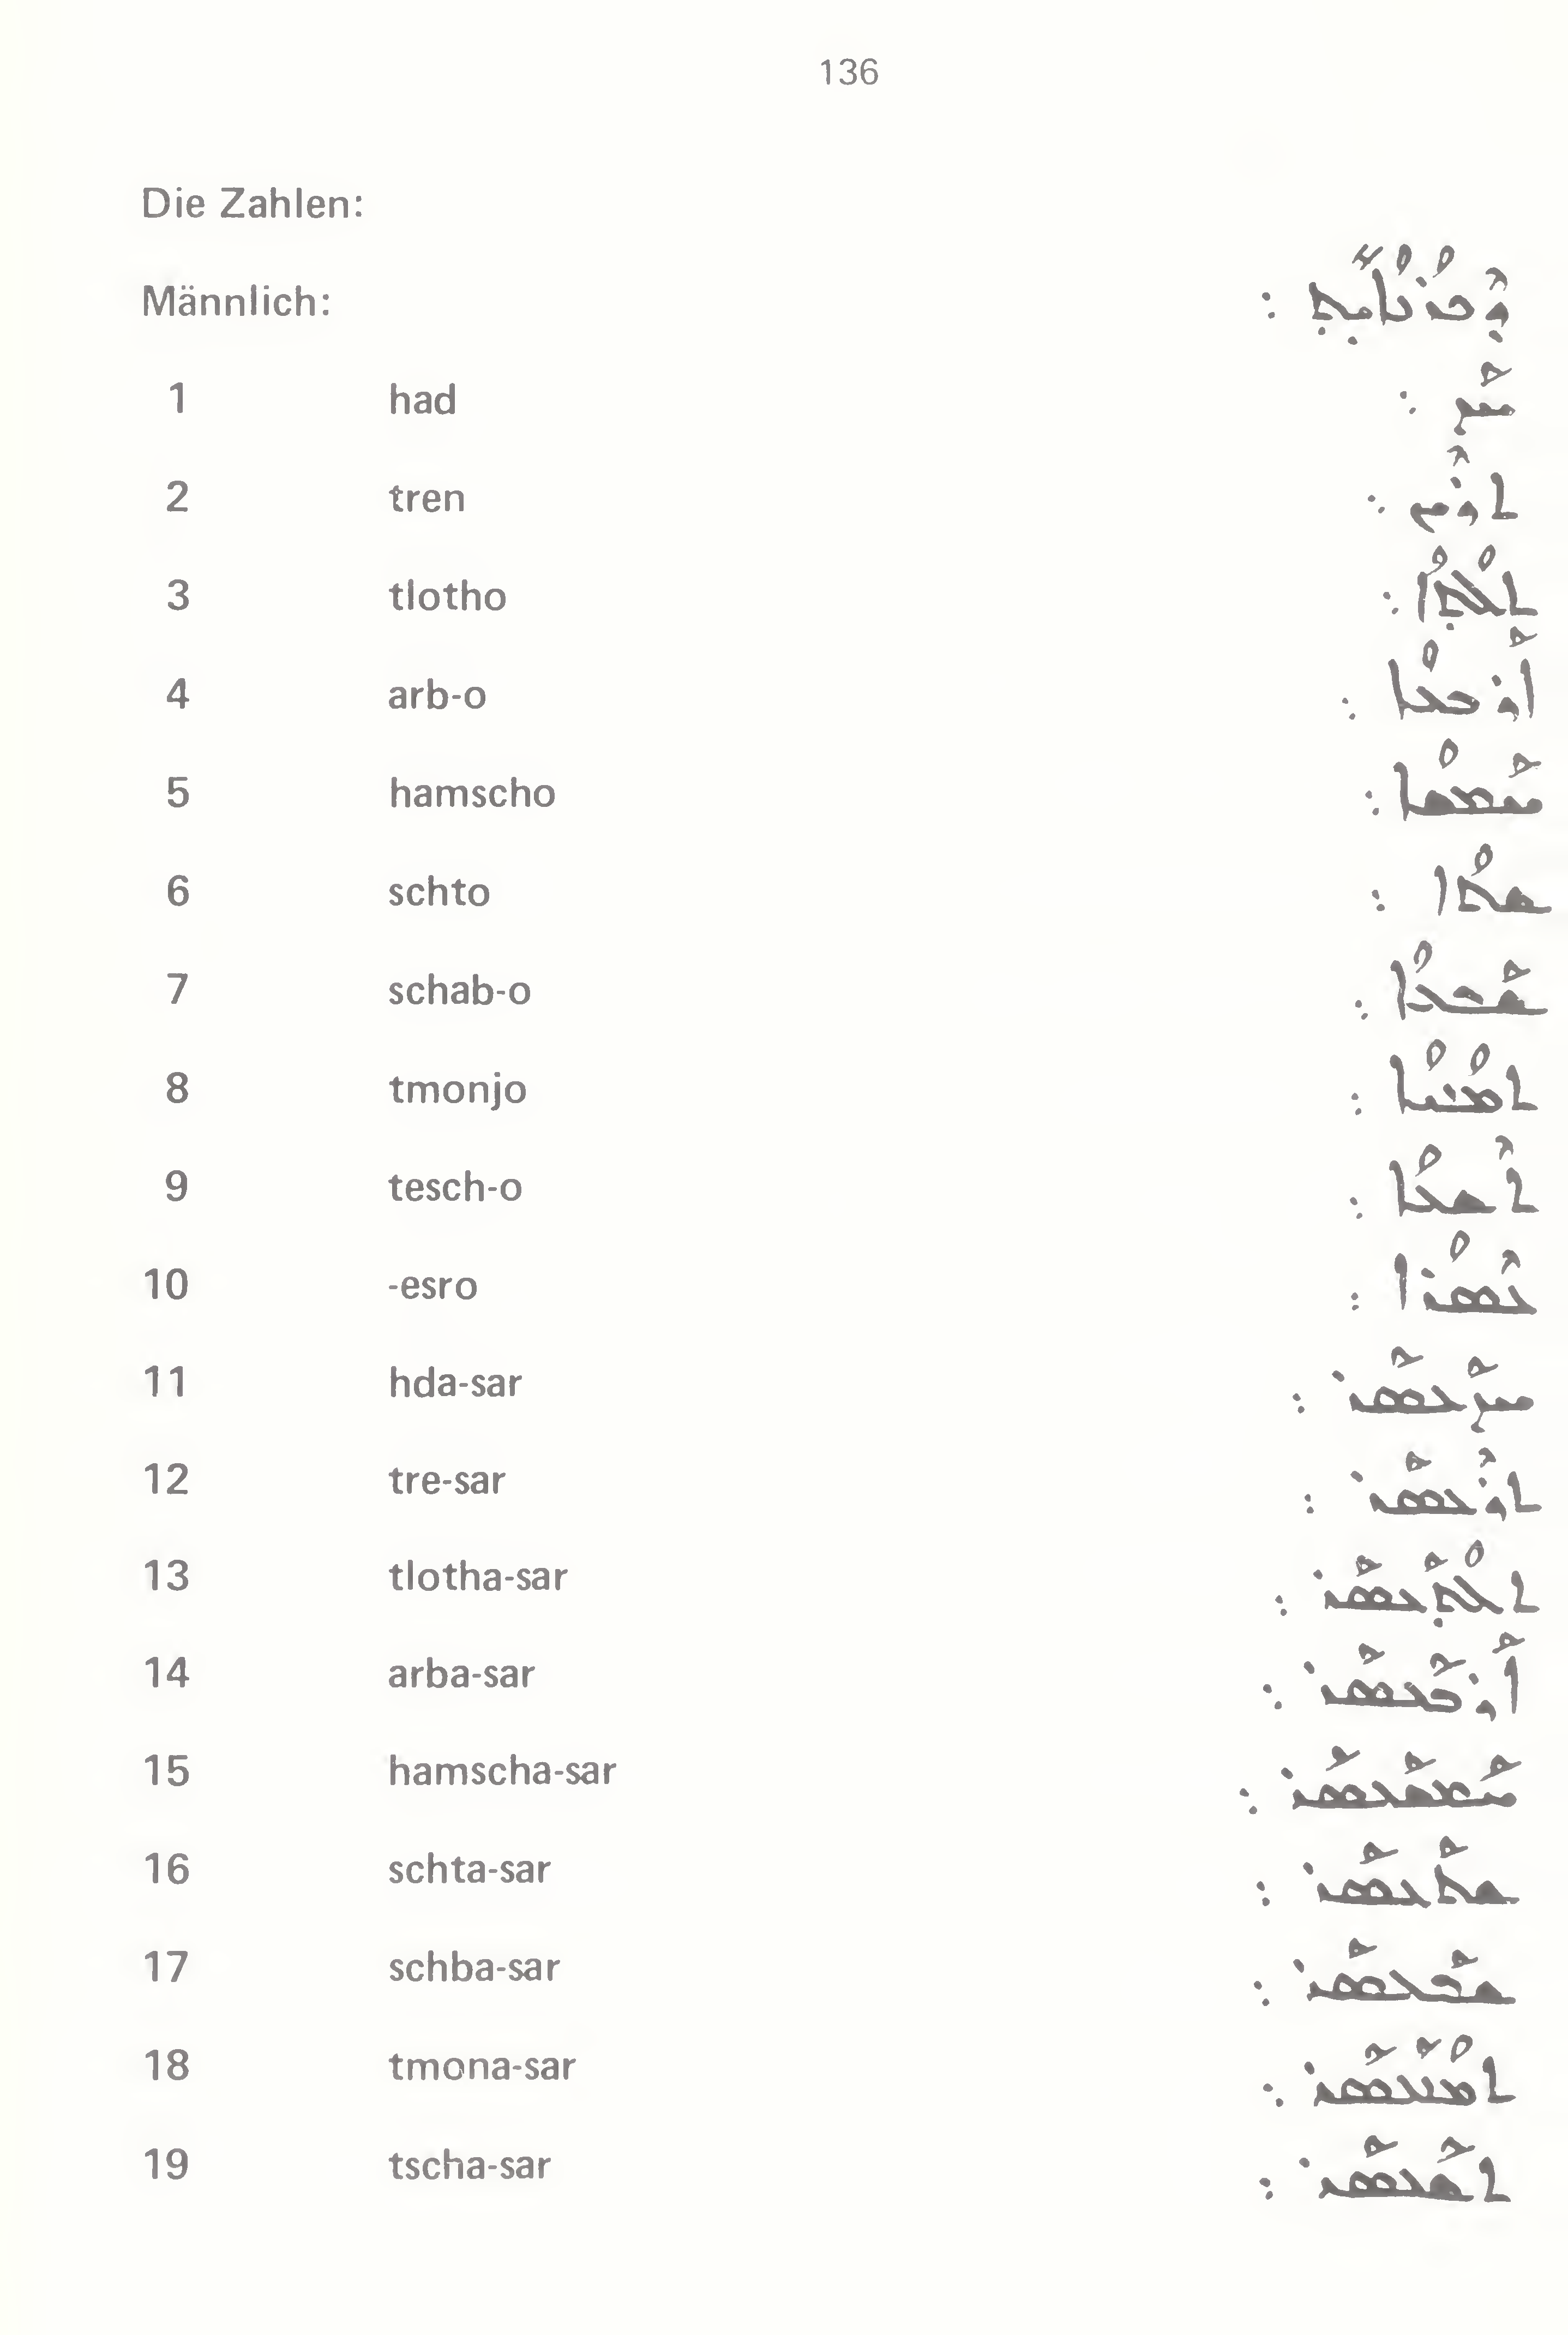 136
Die Zahlen:
Männlich: ܕܶܟܪܳܢܳܐܝܺܬ݂ :
1 had ܚܰܕ :
2 tren ܬܪܶܝܢ :
3 tlotho ܬܠܳܬ݂ܳܐ :
4 arb-o ܐܰܪܒܥܳܐ :
5 hamscho ܚܰܡܫܳܐ :
6 schto ܫܬܳܐ :
7 schab-o ܫܰܒܥܳܐ :
8 tmonjo ܬܡܳܢܝܳܐ :
9 tesch-o ܬܶܫܥܳܐ :
10 -esro ܥܶܣܪܳܐ :
11 hda-sar ܚܕܰܥܣܰܪ :
12 tre-sar ܬܪܶܥܣܰܪ :
13 tlotha-sar ܬܠܳܬ݂ܰܥܣܰܪ :
14 arba-sar ܐܰܪܒܰܥܣܰܪ :
15 hamscha-sar ܚܰܡܫܰܥܣܰܪ :
16 schta-sar ܫܬܰܥܣܰܪ :
17 schba-sar ܫܒܰܥܣܰܪ :
18 tmona-sar ܬܡܳܢܰܥܣܰܪ :
19 tscha-sar ܬܫܰܥܣܰܪ :